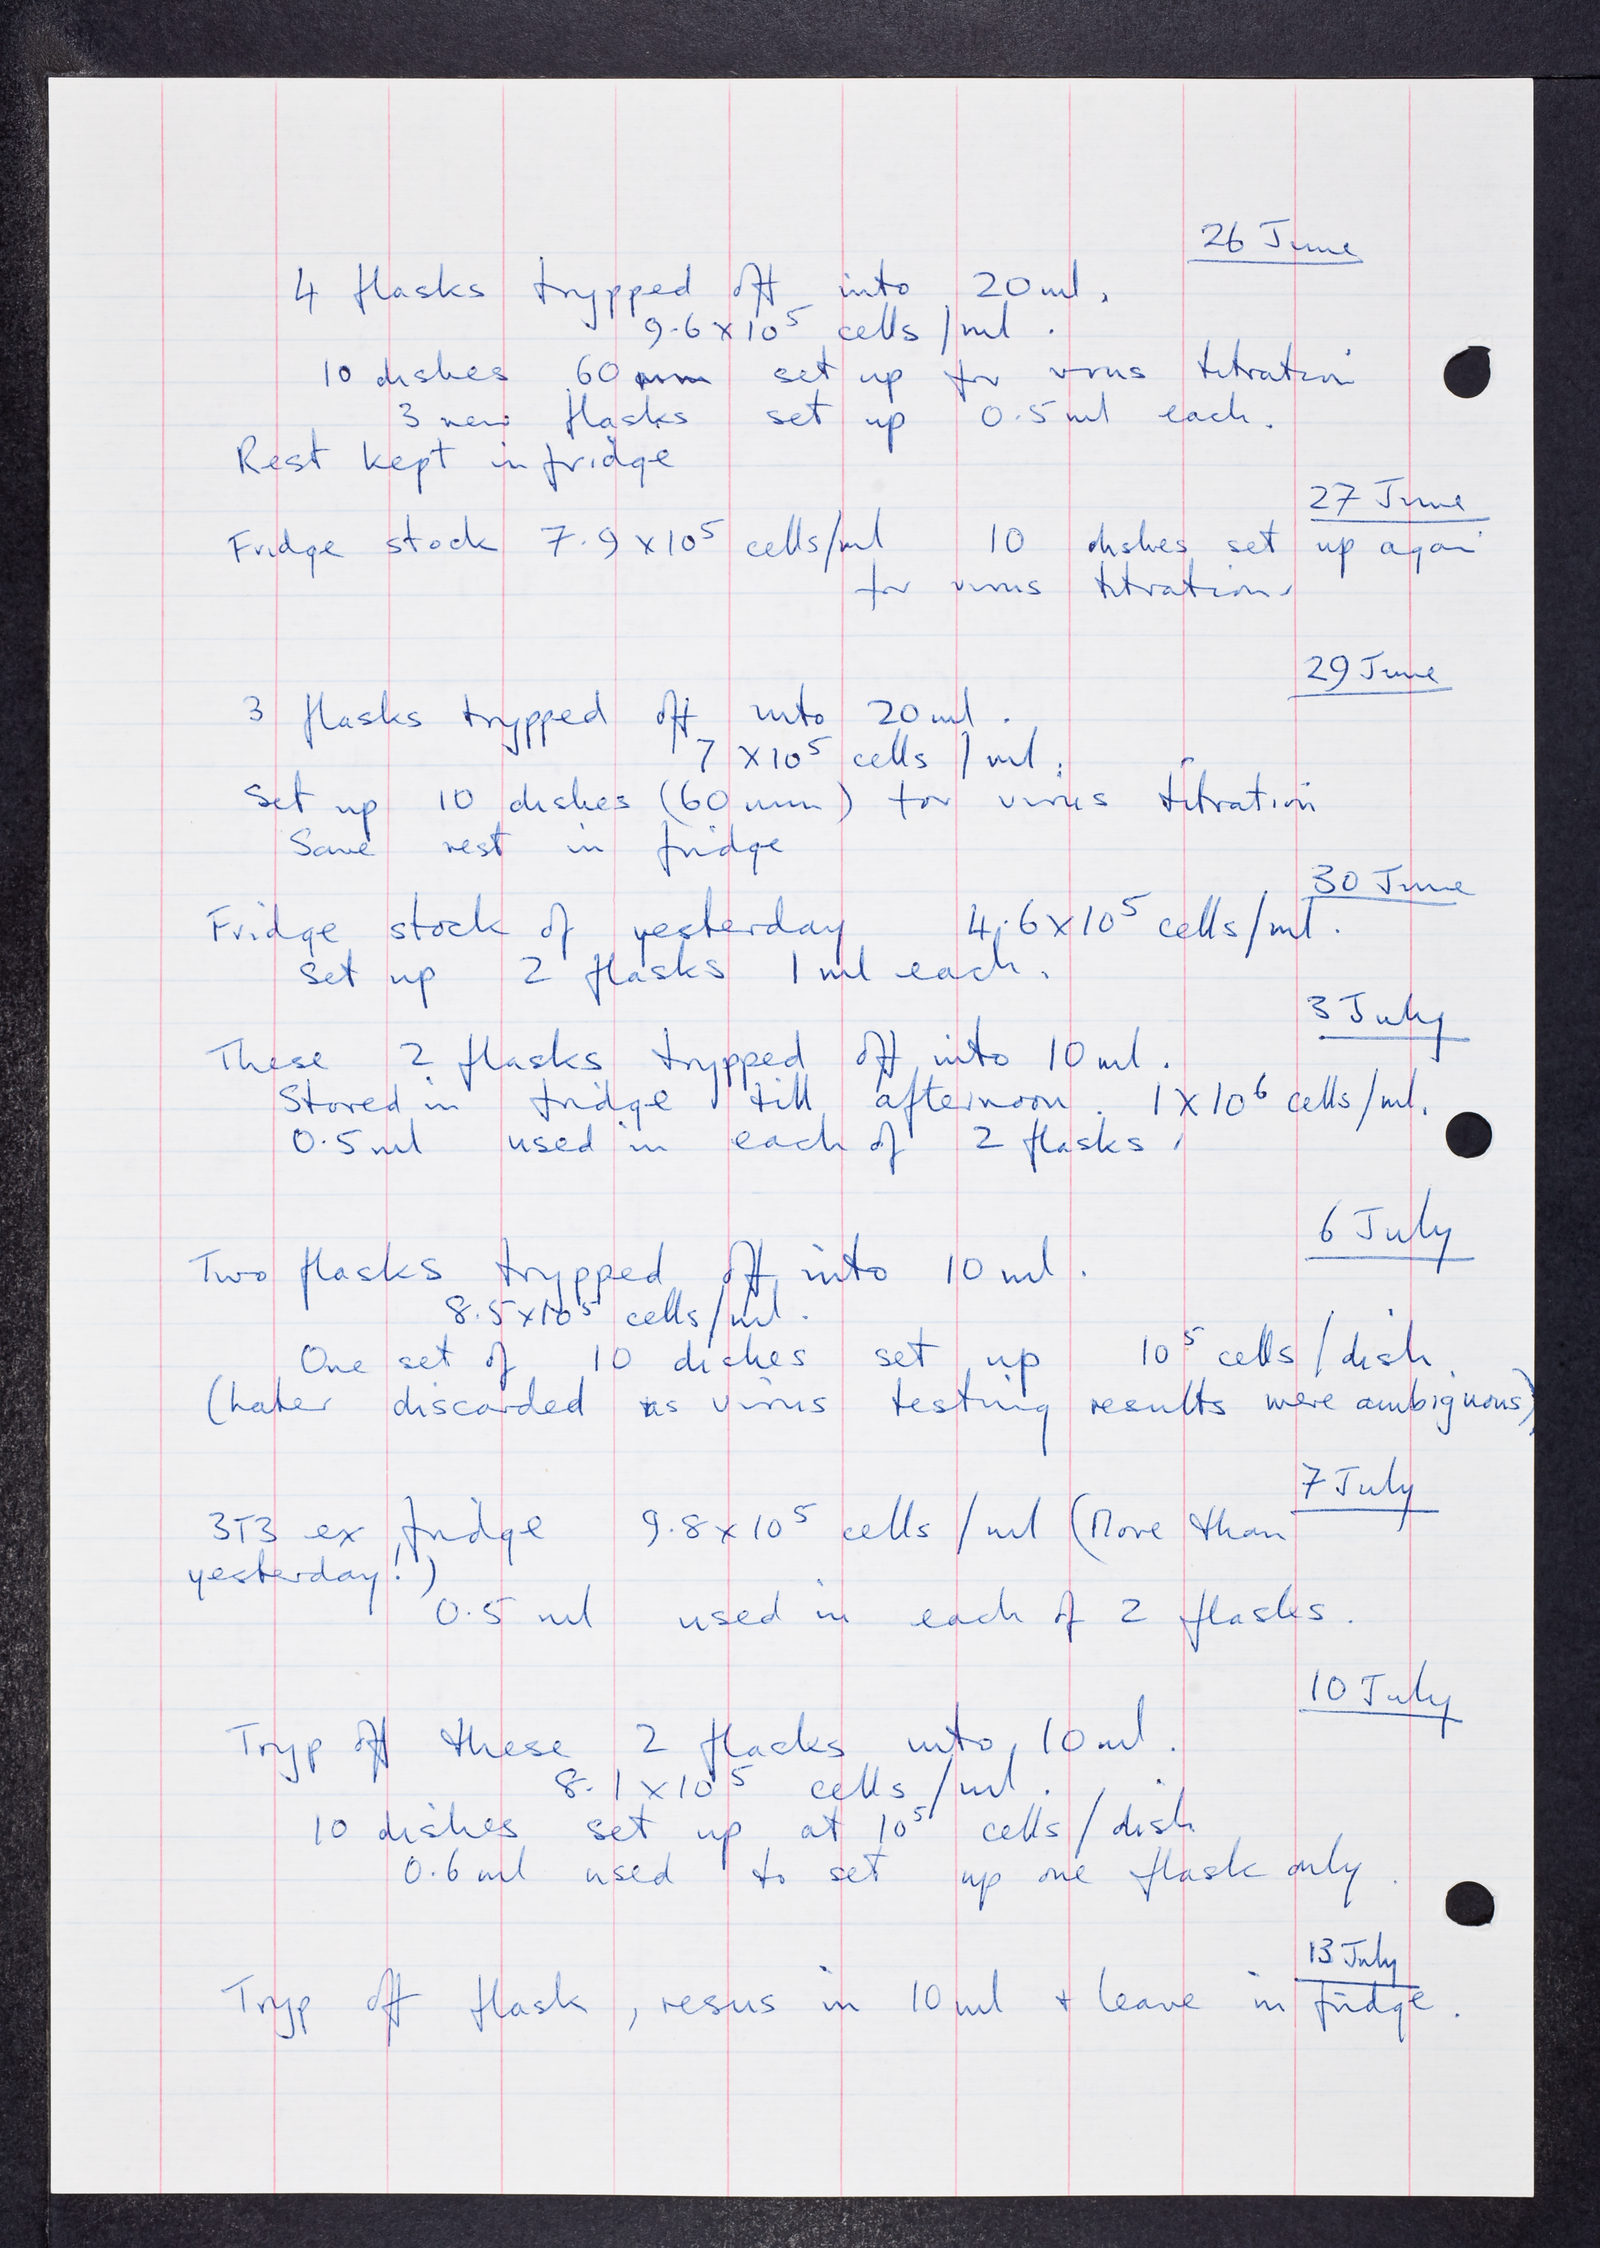 26 June
4 flasks trypped off into 20 ml.
9.6 x 10⁵ cells/ml.
10 dishes 60 mm set up for virus titration
3 new flasks set up 0.5 ml each.
Rest kept in fridge
27 June
Fridge stock 7.9 x 10⁵ cells/ml 10 dishes set up again
for virus titration.
29 June
3 flasks trypped off into 20 ml.
7 x 10⁵ cells/ml.
Set up 10 dishes (60 mm) for virus titration
Save rest in fridge
30 June
Fridge stock of yesterday 4.6 x 10⁵ cells/ml.
Set up 2 flasks 1 ml each.
3 July
These 2 flasks trypped off into 10 ml.
Stored in fridge till afternoon. 1 x 10⁶ cells/ml.
0.5 ml used in each of 2 flasks.
6 July
Two flasks trypped off into 10 ml.
8.5 x 10⁵ cells/ml.
One set of 10 dishes set up 10⁵ cells/dish.
(Later discarded as virus testing results were ambiguous)
7 July
3T3 ex fridge 9.8 x 10⁵ cells/ml (More than
yesterday!)
0.5 ml used in each of 2 flasks.
10 July
Tryp off these 2 flasks into 10 ml.
8.1 x 10⁵ cells/ml.
10 dishes set up at 10⁵ cells/dish
0.6 ml used to set up one flask only.
13 July
Tryp off flask, resus in 10 ml + leave in fridge.